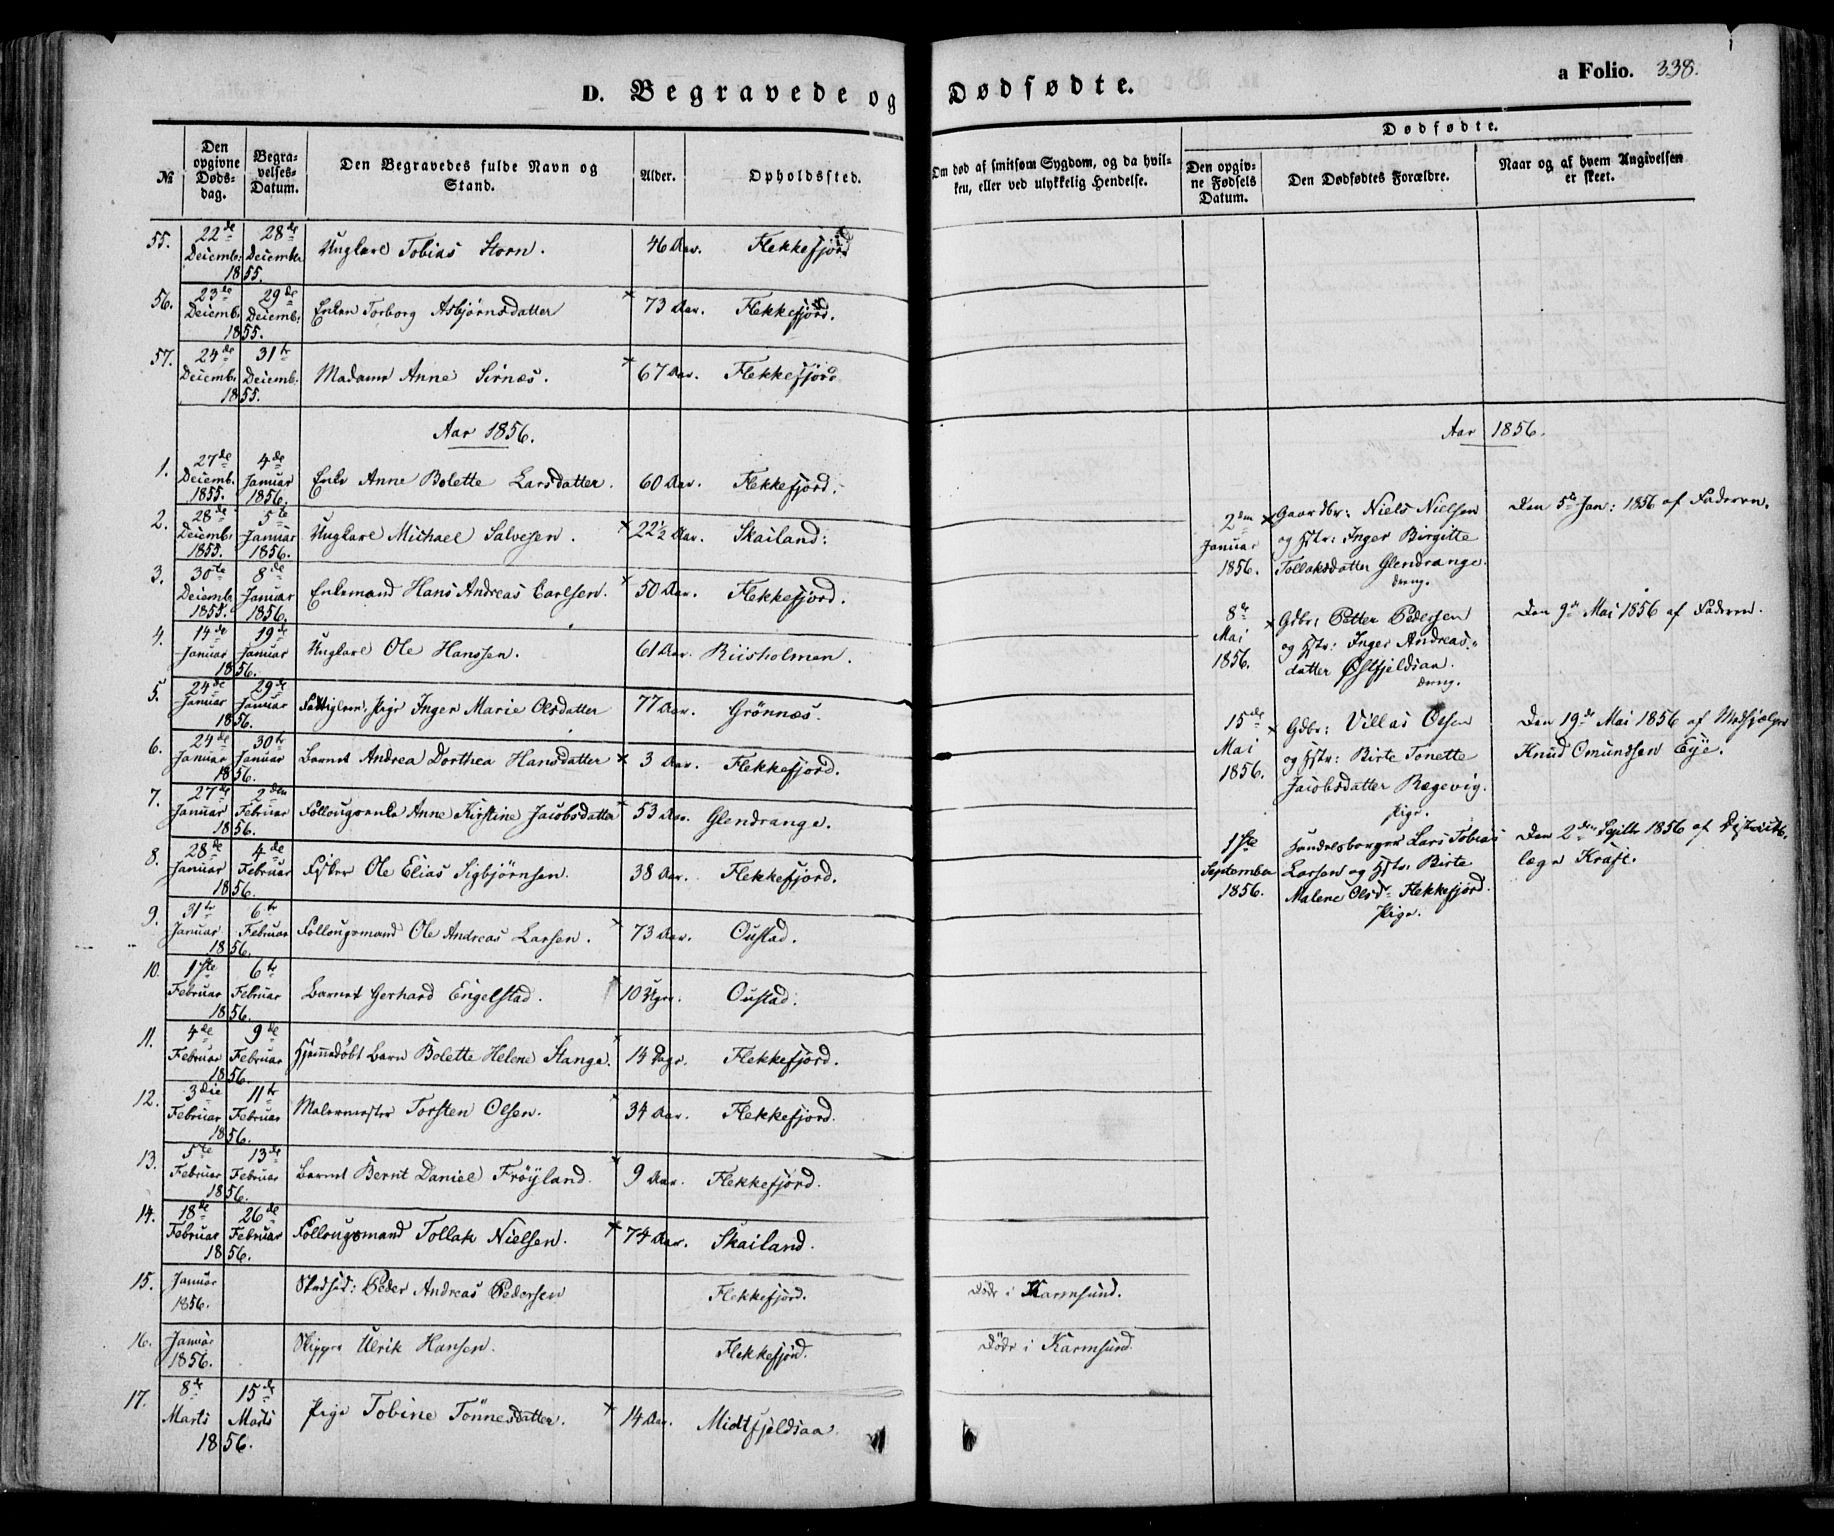 D. Begravede og Dødfødte.
a Folio. 338.
No
Den opgivne Døds-dag.
Begra-velses-Datum.
Den Begravedes fulde Navn og Stand.
Alder.
Opholdssted.
Om død af smitsom Sygdom, og da hvil-ken, eller ved ulykkelig Hendelse.
Dødfødte.
Den opgiv-ne Fødsels Datum.
Den Dødfødtes Forældre.
Naar og af hvem Angivelsen er skeet.
55. 22de Decemb: 28de Decembr 1855. Ungkarl Tobias Storn. 46 Aar. Flekkefjord
56. 23de Decemb: 29de Decemb: 1855. Enken Torborg Asbjørnsdatter × 73 Aar. Flekkefjord.
57. 24de Decemb: 31te Decemb: 1855. Madame Anne Sirnæs. × 67 Aar. Flekkefjord
Aar 1856.
1. 27de Decemb. 1855. 4de Januar 1856. Enke Anne Bolette Larsdatter. 60 Aar. Flekkefjord.
2. 28de Decemb: 1855. 5te Januar 1856. Ungkarl Michael Salvesen. × 22½ Aar. Skailand:
3. 30te Decemb: 1855. 8de Januar 1856. Enkemand Hans Andreas Carlsen. × 50 Aar. Flekkefjord.
4. 14de Januar 19de Januar 1856. Ungkarl Ole Hanssen. 61 Aar. Riisholmen.
5. 24de Januar 29de Januar 1856. Fattiglem, Pige Inger Marie Olsdatter 77 Aar. Grönnæs.
6. 24de Januar 30te Januar 1856. Barnet Andrea Dorthea Hansdatter × 3 Aar. Flekkefjord.
7. 27de Januar 2den Februar 1856. Follougsenke Anne Kirstine Jacobsdatter 53 Aar. Glendrange.
8. 28de Januar 4de Februar 1856. Fisker Ole Elias Sigbjörnsen. 38 Aar. Flekkefjord.
9. 31te Januar 6te Februar 1856. Follougsmand Ole Andreas Larsen. × 73 Aar. Oustad.
10. 1ste Februar 6te Februar 1856. Barnet Gerhard Engelstad. 10 Uger. Oustad.
11. 4de Februar 9de Februar 1856. Hjemmedöbt Barn Bolette Helene Stange. 14 Dage. Flekkefjord.
12. 3die Februar 11te Februar 1856. Malermester Torsten Olsen. 34 Aar. Flekkefjord.
13. 5te Februar 13de Februar 1856. Barnet Bernt Daniel Fröyland. 9 Aar. Flekkefjord.
14. 18de Februar 26de Februar 1856. Follougsmand Tollak Nielsen. × 74 Aar. Skailand.
15. Januar 1856. Peder Andreas Pedersen Flekkefjord. Döde i Karmsund.
16. Januar 1856. Skipper Ulrik Hansen. Flekkefjord. Döde i Karmsund.
17. 8de Marts 15de Marts 1856. Pige Tobine Tönnesdatter. × 14 Aar. Midtfjeldsaa
Aar 1856.
2den Januar 1856. × Gaardbr: Niels Nielsen og Hstr: Inger Birgitte Tollaksdatter Glendrange. dreng. Den 5te Jan: 1856 af Faderen.
8de Mai 1856. × Gdbr: Petter Pedersen og Hstr: Inger Andreas-datter Østfjeldsaa. dreng. Den 9de Mai 1856 af Faderen.
15de Mai 1856. × Gdbr: Villas Olsen og Hstr: Birte Tonette Jacobsdatter Rægevig. Pige. Den 19de Mai 1856 af Medhjelper Knud Omundsen Eye.
1ste September 1856. Handelsborger Lars Tobias Larsen og Hstr: Birte Malene Olsd: Flekkefjord. Pige. Den 2den Septb 1856 af Districts-læge Kraft.